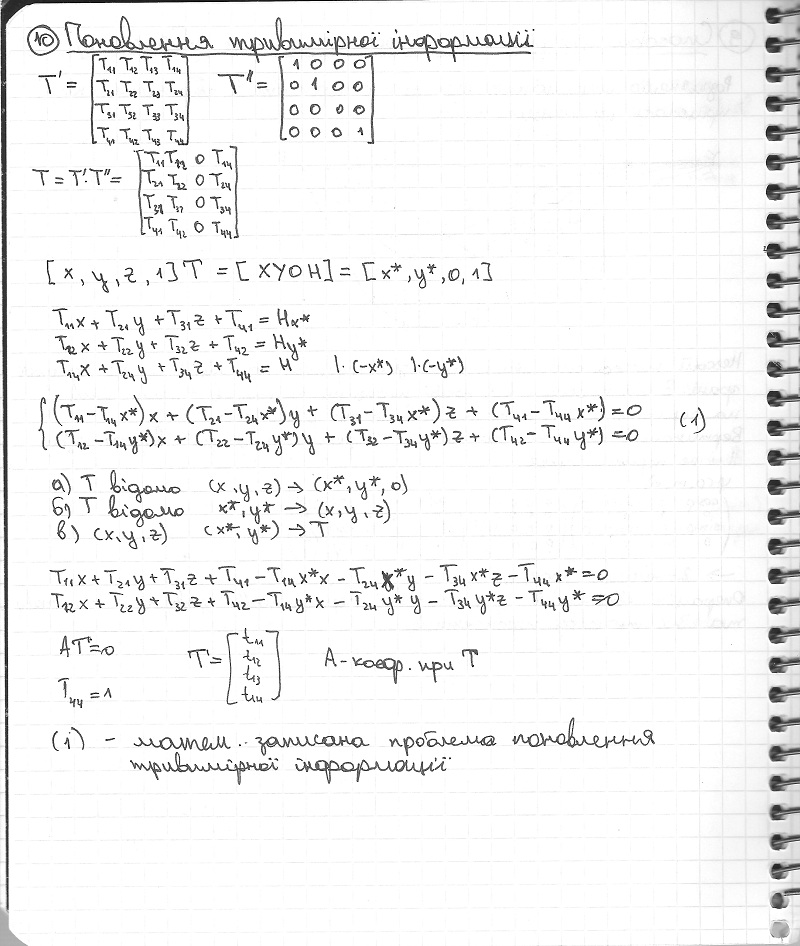 10 Поновлення тривимірної інформації
T' = [T11 T12 T13 T14 T'' = [1 0 0 0
T21 T22 T23 T24 0 1 0 0
T31 T32 T33 T34 0 0 0 0
T41 T42 T43 T44] 0 0 0 1]
T = T'·T'' = [T11 T12 0 T14
T21 T22 0 T24
T31 T32 0 T34
T41 T42 0 T44]
[x, y, z, 1] T = [XYOH] = [x*, y*, 0, 1]
T11x + T21y + T31z + T41 = Hx*
T12x + T22y + T32z + T42 = Hy*
T14x + T24y + T34z + T44 = H |·(-x*) |·(-y*)
{(T11-T14x*)x + (T21-T24x*)y + (T31-T34x*)z + (T41-T44x*)=0
(T12-T14y*)x + (T22-T24y*)y + (T32-T34y*)z + (T42-T44y*)=0 (1)
а) T відомо (x, y, z) → (x*, y*, 0)
б) T відомо x*, y* → (x, y, z)
в) (x, y, z) (x*, y*) → T
T11x + T21y + T31z + T41 - T14x*x - T24x*y - T34x*z - T44x*=0
T12x + T22y + T32z + T42 - T14y*x - T24y*y - T34y*z - T44y*=0
AT=0 T = [t11
t12
t13
t14] A-коеф. при T
T44=1
(1) - матем. записана проблема поновлення
тривимірної інформації